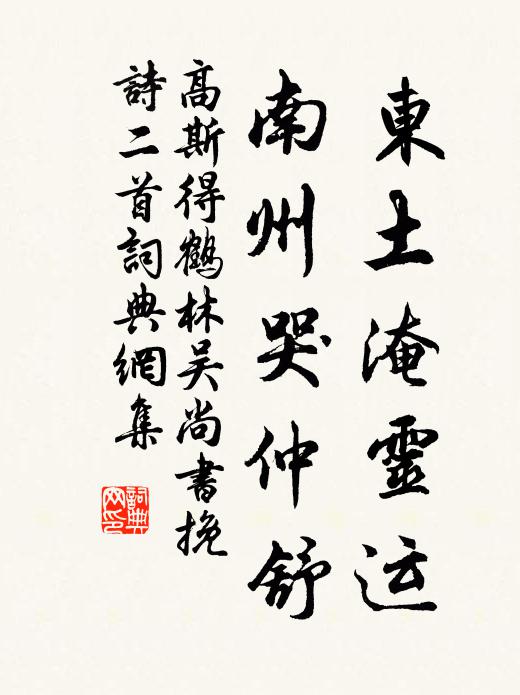 東土淹靈运
南州哭仲舒
高斯得鶴林吴尚書挽
詩二首詞典網集
詞典网印